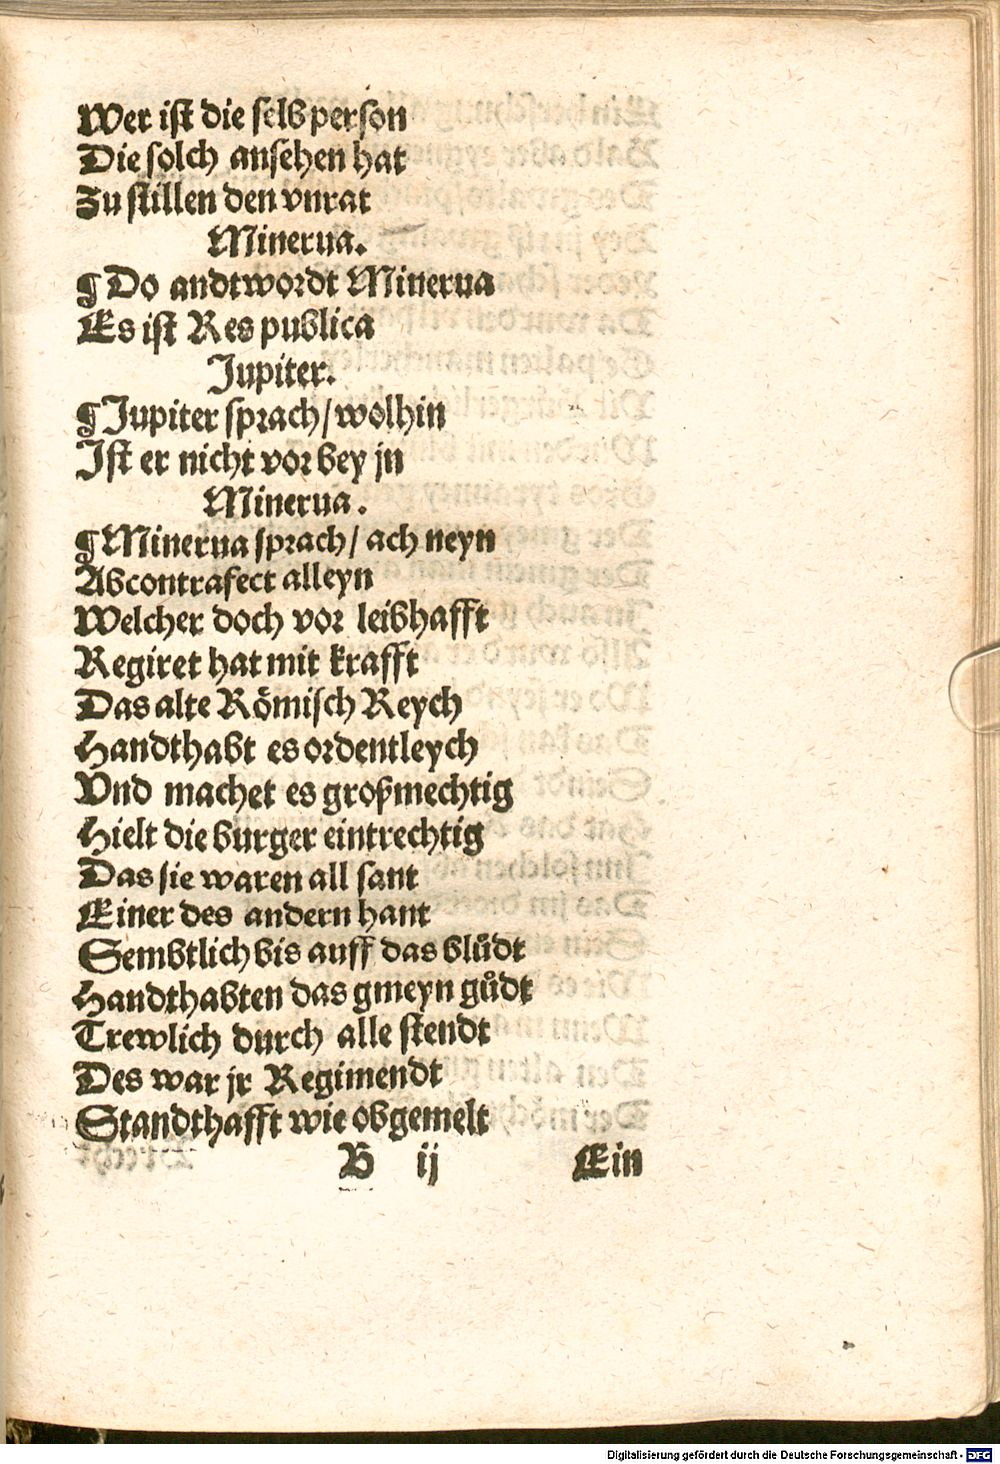 Wer ist die selb person
Die solch ansehen hat
Zu stillen den vnrat
Minerua.
¶ Do andtwordt Minerua
Es ist Res publica
Jupiter.
¶ Jupiter sprach / wolhin
Ist er nicht vor bey jn
Minerua.
¶ Minerua sprach / ach neyn
Abcontrafect alleyn
Welcher doch vor leibhafft
Regiret hat mit krafft
Das alte Römisch Reych
Handthabt es ordentleych
Vnd machet es großmechtig
Hielt die burger eintrechtig
Das sie waren all sant
Einer des andern hant
Sembtlich bis auff das blůdt
Handthabten das gmeyn gůdt
Trewlich durch alle stendt
Des war jr Regimendt
Standthafft wie obgemelt
B ij Ein
Digitalisierung gefördert durch die Deutsche Forschungsgemeinschaft - DFG